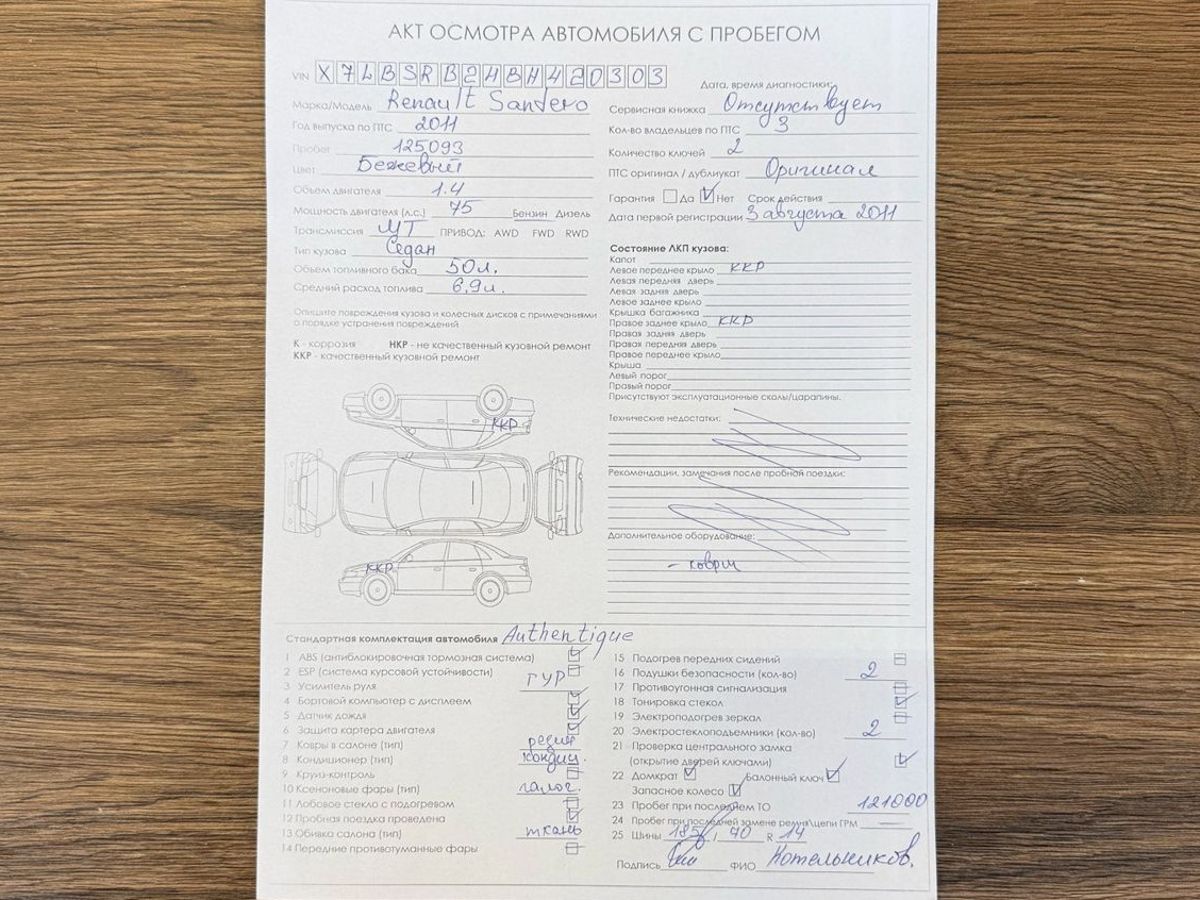 АКТ ОСМОТРА АВТОМОБИЛЯ С ПРОБЕГОМ
VIN X7LBSRB2HBH420303
Дата, время диагностики:
Марка/Модель Renault Sandero
Сервисная книжка Отсутствует
Год выпуска по ПТС 2011
Кол-во владельцев по ПТС 3
Пробег 125093
Количество ключей 2
Цвет Бежевый
ПТС оригинал / дубликат Оригинал
Объем двигателя 1.4
Гарантия Да Нет Срок действия
Мощность двигателя (л.с.) 75 Бензин Дизель
Дата первой регистрации 3 августа 2011
Трансмиссия МТ ПРИВОД: AWD FWD RWD
Тип кузова Седан
Объем топливного бака 50л.
Средний расход топлива 6.9л.
Опишите повреждения кузова и колесных дисков с примечаниями
о порядке устранения повреждений
К - коррозия НКР - не качественный кузовной ремонт
ККР - качественный кузовной ремонт
ККР
ККР
Состояние ЛКП кузова:
Капот
Левое переднее крыло ККР
Левая передняя дверь
Левая задняя дверь
Левое заднее крыло
Крышка багажника
Правое заднее крыло ККР
Правая задняя дверь
Правая передняя дверь
Правое переднее крыло
Крыша
Левый порог
Правый порог
Присутствуют эксплуатационные сколы/царапины.
Технические недостатки:
Рекомендации, замечания после пробной поездки:
Дополнительное оборудование:
- ковры
Стандартная комплектация автомобиля Authentique
1 ABS (антиблокировочная тормозная система)
2 ESP (система курсовой устойчивости)
3 Усилитель руля ГУР
4 Бортовой компьютер с дисплеем
5 Датчик дождя
6 Защита картера двигателя
7 Ковры в салоне (тип) резин
8 Кондиционер (тип) кондиц.
9 Круиз-контроль
10 Ксеноновые фары (тип) галог.
11 Лобовое стекло с подогревом
12 Пробная поездка проведена
13 Обивка салона (тип) ткань
14 Передние противотуманные фары
15 Подогрев передних сидений
16 Подушки безопасности (кол-во) 2
17 Противоугонная сигнализация
18 Тонировка стекол
19 Электроподогрев зеркал
20 Электростеклоподъемники (кол-во) 2
21 Проверка центрального замка
(открытие дверей ключами)
22 Домкрат Балонный ключ
Запасное колесо
23 Пробег при последнем ТО 121000
24 Пробег при последней замене ремня\цепи ГРМ
25 Шины 185 / 70 R 14
Подпись ФИО Котельников.